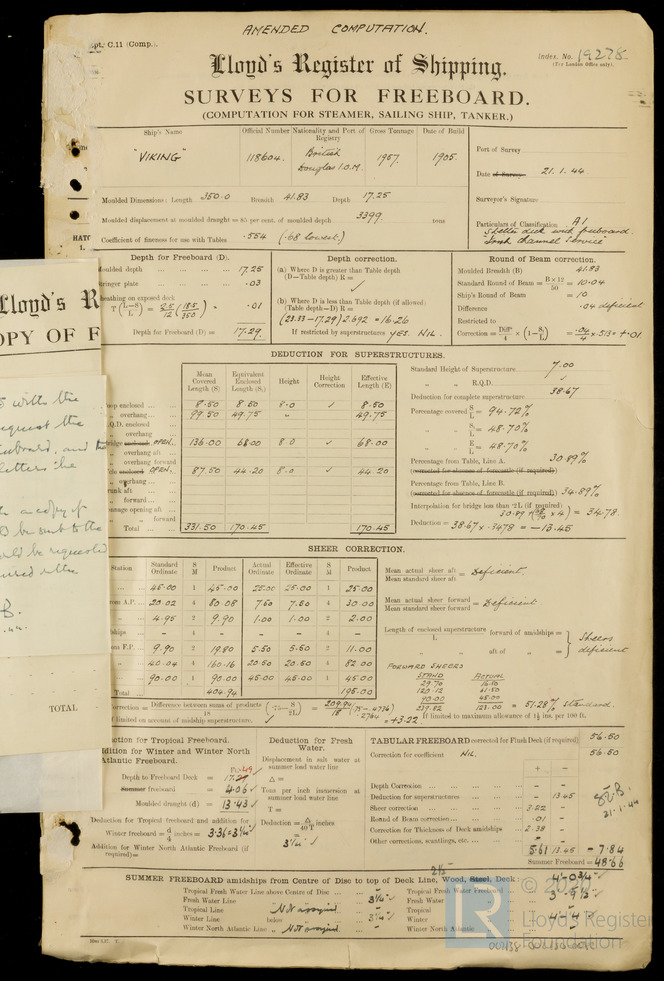 AMENDED COMPUTATION.
C.11 (Comp.).
Index. No. 19278
(For London Office only).
Lloyd's Register of Shipping.
SURVEYS FOR FREEBOARD.
(COMPUTATION FOR STEAMER, SAILING SHIP, TANKER.)
Ship's Name
Official Number
Nationality and Port of Registry
Gross Tonnage
Date of Build
"VIKING"
118604.
British
Douglas I.O.M.
1957.
1905.
Port of Survey
Date of Survey 21.1.44
Surveyor's Signature
Particulars of Classification A1
Shelter deck with freeboard.
"Irish Channel Service"
Moulded Dimensions: Length 350.0 Breadth 41.83 Depth 17.25
Moulded displacement at moulded draught = 85 per cent. of moulded depth 3399. tons
Coefficient of fineness for use with Tables .554 (.68 lowest)
Depth for Freeboard (D).
Moulded depth 17.25
Stringer plate .03
Sheathing on exposed deck
T (L-S/L) = 2.5/12 (18.5/350) = .01
Depth for Freeboard (D) = 17.29
Depth correction.
(a) Where D is greater than Table depth
(D—Table depth) R =
(b) Where D is less than Table depth (if allowed)
(Table depth—D) R =
(23.33 - 17.29) 2.692 = 16.26
If restricted by superstructures YES. NIL.
Round of Beam correction.
Moulded Breadth (B) 41.83
Standard Round of Beam = B × 12/50 = 10.04
Ship's Round of Beam = 10
Difference .04 deficient
Restricted to
Correction = Diff/4 × (1 - S/L) = .04/4 × .513 = +.01
DEDUCTION FOR SUPERSTRUCTURES.
Mean Covered Length (S)
Equivalent Enclosed Length (S₁)
Height
Height Correction
Effective Length (E)
Poop enclosed 8.50 8.50 8.0 ✓ 8.50
overhang 99.50 49.75 " 49.75
R.Q.D. enclosed
overhang
Bridge enclosed OPEN. 136.00 68.00 8.0 ✓ 68.00
overhang aft
overhang forward
enclosed OPEN. 87.50 44.20 8.0 ✓ 44.20
overhang
Trunk aft
forward
Tonnage opening aft
forward
Total 331.50 170.45 170.45
Standard Height of Superstructure 7.00
" " R.Q.D. ✓
Deduction for complete superstructure 38.67
Percentage covered S/L = 94.72%
" S₁/L = 48.70%
" E/L = 48.70%
Percentage from Table, Line A. 30.89%
(corrected for absence of forecastle (if required))
Percentage from Table, Line B.
(corrected for absence of forecastle (if required)) 34.89%
Interpolation for bridge less than .2L (if required)
= 34.78
Deduction = 38.67 × .3478 = -13.45
SHEER CORRECTION.
Station
Standard Ordinate
S M
Product
Actual Ordinate
Effective Ordinate
S M
Product
45.00 1 45.00 25.00 25.00 1 25.00
from A.P. 20.02 4 80.08 7.50 7.50 4 30.00
4.95 2 9.90 1.00 1.00 2 2.00
- 4 - - - 4 -
from F.P. 9.90 2 19.80 5.50 5.50 2 11.00
40.04 4 160.16 20.50 20.50 4 82.00
90.00 1 90.00 45.00 45.00 1 45.00
Total 404.94 195.00
Mean actual sheer aft / Mean standard sheer aft = Deficient.
Mean actual sheer forward / Mean standard sheer forward = Deficient.
Length of enclosed superstructure / L forward of amidships =
" aft of " =
Sheers deficient
FORWARD SHEERS
STAND ACTUAL
29.70 16.50
120.12 61.50
90.00 45.00
239.82 123.00 = 51.28% standard.
Correction = Difference between sums of products / 18 (.75 - S/2L) = 209.94/18 (.75 - .4736) .2764 = +3.22.
If limited on account of midship superstructure.
If limited to maximum allowance of 1½ ins. per 100 ft.
Deduction for Tropical Freeboard.
Addition for Winter and Winter North Atlantic Freeboard.
Depth to Freeboard Deck =
Summer freeboard = 4.06 ✓
Moulded draught (d) = 13.43 ✓
Deduction for Tropical freeboard and addition for Winter freeboard = d/4 inches = 3.36 = 3¼" ✓
Addition for Winter North Atlantic Freeboard (if required) =
Deduction for Fresh Water.
Displacement in salt water at summer load water line
Δ =
Tons per inch immersion at summer load water line
T =
Deduction = Δ/40 T inches
= 3¼" ✓
TABULAR FREEBOARD corrected for Flush Deck (if required) 56.50
Correction for coefficient NIL. 56.50
+ -
Depth Correction - -
Deduction for superstructures - 13.45
Sheer correction 3.22 -
Round of Beam correction .01 -
Correction for Thickness of Deck amidships 2.38 -
Other corrections, scantlings, etc. - -
5.61 13.45 = -7.84
Summer Freeboard = 48.66
21.1.44
SUMMER FREEBOARD amidships from Centre of Disc to top of Deck Line, Wood, Steel, Deck: 4'-0¾" ✓
2½
Tropical Fresh Water Line above Centre of Disc -
Fresh Water Line " " 3¼" ✓
Tropical Line " " Not assigned
Winter Line below " 3¼" ✓
Winter North Atlantic Line " " Not assigned
Tropical Fresh Water Freeboard
Fresh Water " 3'-9½" ✓
Tropical "
Winter " 4'-4" ✓
Winter North Atlantic "
Lloyd's R
OPY OF F
with the
request the
freeboard, and
letters the
a copy of
be sent to the
be requested
TOTAL
LR
© 20
Lloyd's Register
Foundation